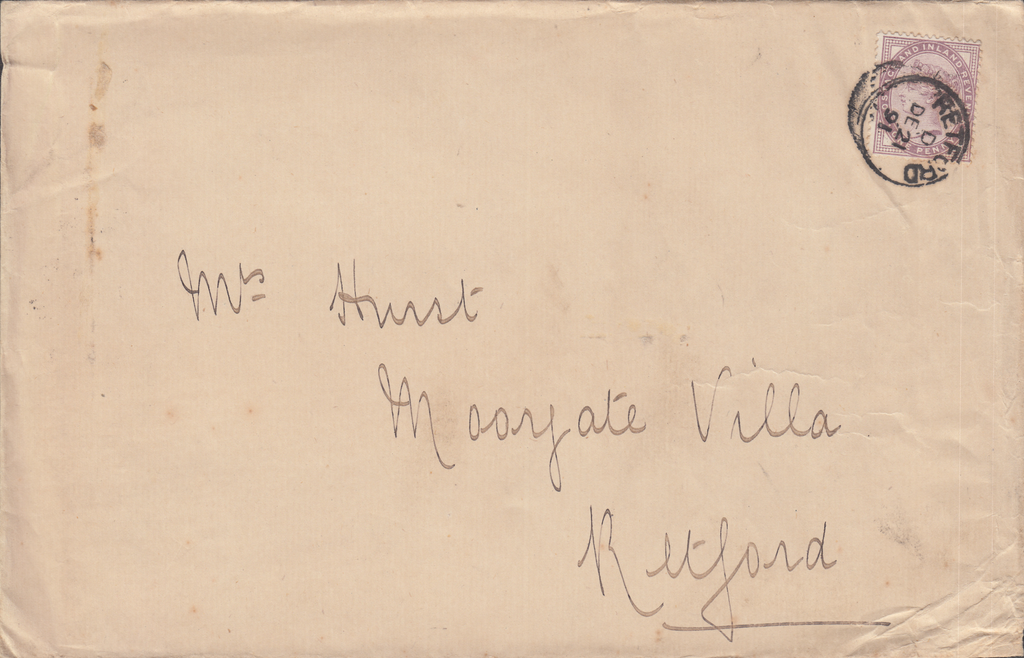 POSTAGE AND INLAND REVENUE
ONE PENNY
RETFORD
D
DE 21
91
Mrs Hurst
Moorgate Villa
Retford